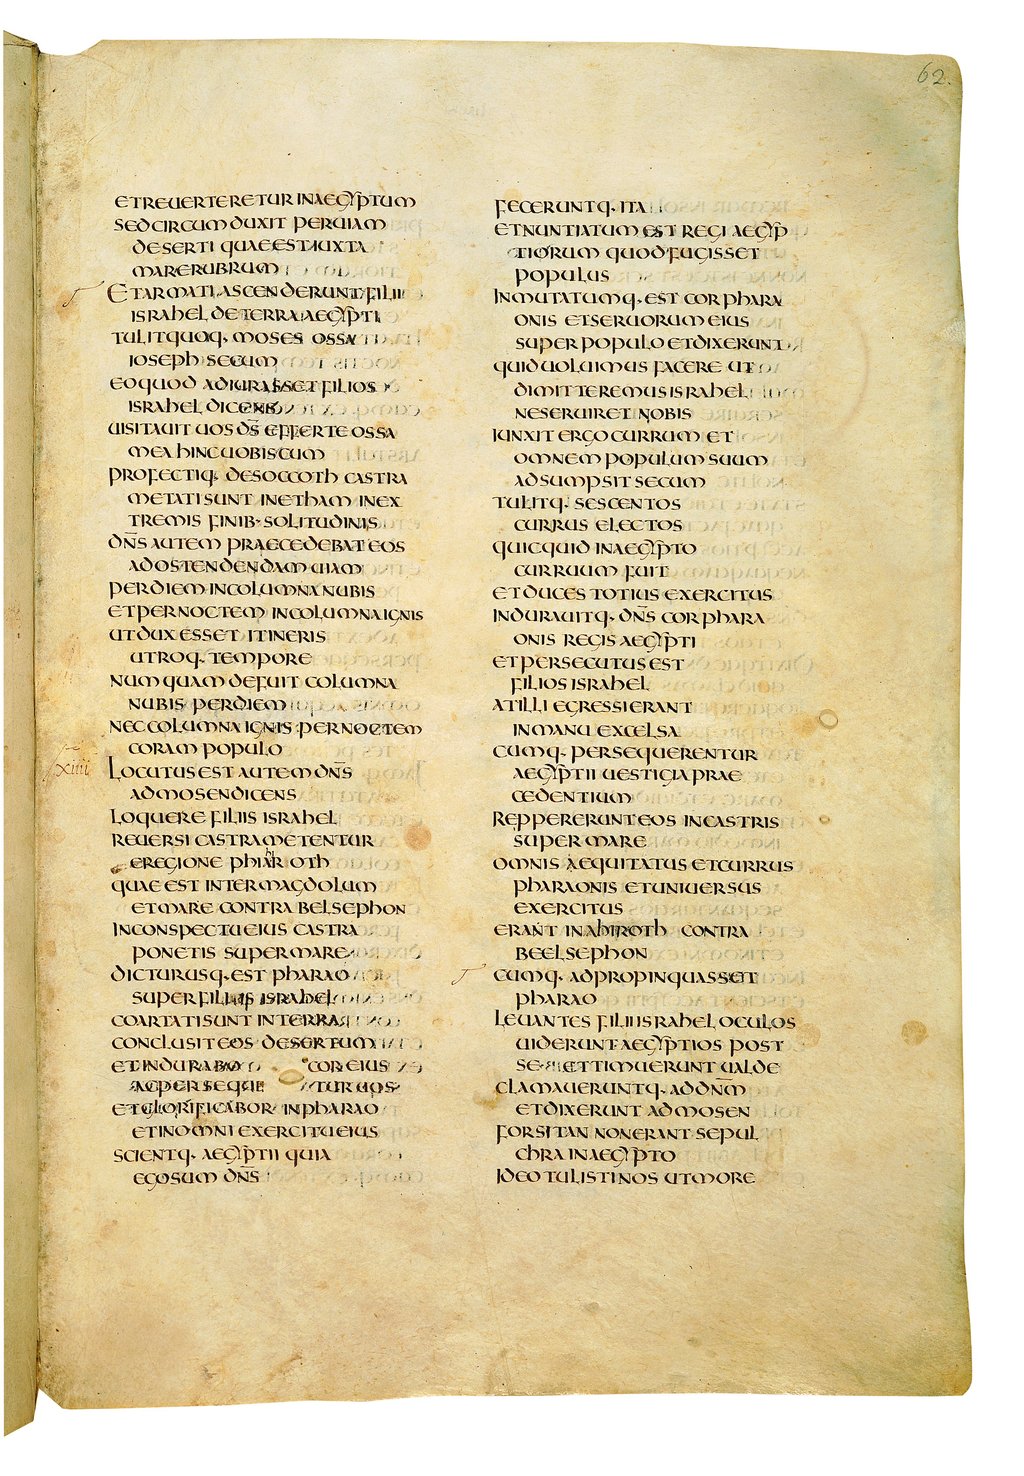 62.
ETREUERTERETUR INAEGYPTUM
SED CIRCUMDUXIT PERUIAM
DESERTI QUAE EST IUXTA
MARE RUBRUM
ET ARMATI ASCENDERUNT FILII
ISRAHEL DE TERRA AEGYPTI
TULITQUOQ· MOSES OSSA
IOSEPH SECUM
EO QUOD ADIURASSET FILIOS
ISRAHEL DICENS
UISITAUIT UOS D̄S EFFERTE OSSA
MEA HINC UOBISCUM
PROFECTIQ· DESOCCOTH CASTRA
METATI SUNT INETHAM INEX
TREMIS FINIB· SOLITUDINIS
DN̄S AUTEM PRAECEDEBAT EOS
AD OSTENDENDAM UIAM
PERDIEM INCOLUMNA NUBIS
ET PERNOCTEM INCOLUMNA IGNIS
UT DUX ESSET ITINERIS
UTROQ· TEMPORE
NUMQUAM DEFUIT COLUMNA
NUBIS PERDIEM
NEC COLUMNA IGNIS PERNOCTEM
CORAM POPULO
XIIII LOCUTUS EST AUTEM DN̄S
AD MOSEN DICENS
LOQUERE FILIIS ISRAHEL
REUERSI CASTRAMETENTUR
EREGIONE PHIAHROTH
QUAE EST INTER MAGDOLUM
ET MARE CONTRA BELSEPHON
INCONSPECTU EIUS CASTRA
PONETIS SUPER MARE
DICTURUSQ· EST PHARAO
SUPER FILIIS ISRAHEL
COARTATI SUNT INTERRA
CONCLUSIT EOS DESERTUM
ET INDURABO COR EIUS
AC PERSEQUETUR UOS
ET GLORIFICABOR INPHARAO
ET INOMNI EXERCITU EIUS
SCIENTQ· AEGYPTII QUIA
EGO SUM DN̄S
FECERUNTQ· ITA
ET NUNTIATUM EST REGI AEGYP
TIORUM QUOD FUGISSET
POPULUS
INMUTATUMQ· EST COR PHARA
ONIS ET SERUORUM EIUS
SUPER POPULO ET DIXERUNT
QUID UOLUIMUS FACERE UT
DIMITTEREMUS ISRAHEL
NE SERUIRET NOBIS
IUNXIT ERGO CURRUM ET
OMNEM POPULUM SUUM
ADSUMPSIT SECUM
TULITQ· SESCENTOS
CURRUS ELECTOS
QUICQUID INAEGYPTO
CURRUUM FUIT
ET DUCES TOTIUS EXERCITUS
INDURAUITQ· DN̄S COR PHARA
ONIS REGIS AEGYPTI
ET PERSECUTUS EST
FILIOS ISRAHEL
AT ILLI EGRESSI ERANT
INMANU EXCELSA
CUMQ· PERSEQUERENTUR
AEGYPTII UESTIGIA PRAE
CEDENTIUM
REPPERERUNT EOS INCASTRIS
SUPER MARE
OMNIS AEQUITATUS ET CURRUS
PHARAONIS ET UNIUERSUS
EXERCITUS
ERANT INAHIROTH CONTRA
BEELSEPHON
CUMQ· ADPROPINQUASSET
PHARAO
LEUANTES FILII ISRAHEL OCULOS
UIDERUNT AEGYPTIOS POST
SE ET TIMUERUNT UALDE
CLAMAUERUNTQ· AD DN̄M
ET DIXERUNT AD MOSEN
FORSITAN NON ERANT SEPUL
CHRA INAEGYPTO
IDEO TULISTI NOS UT MORE